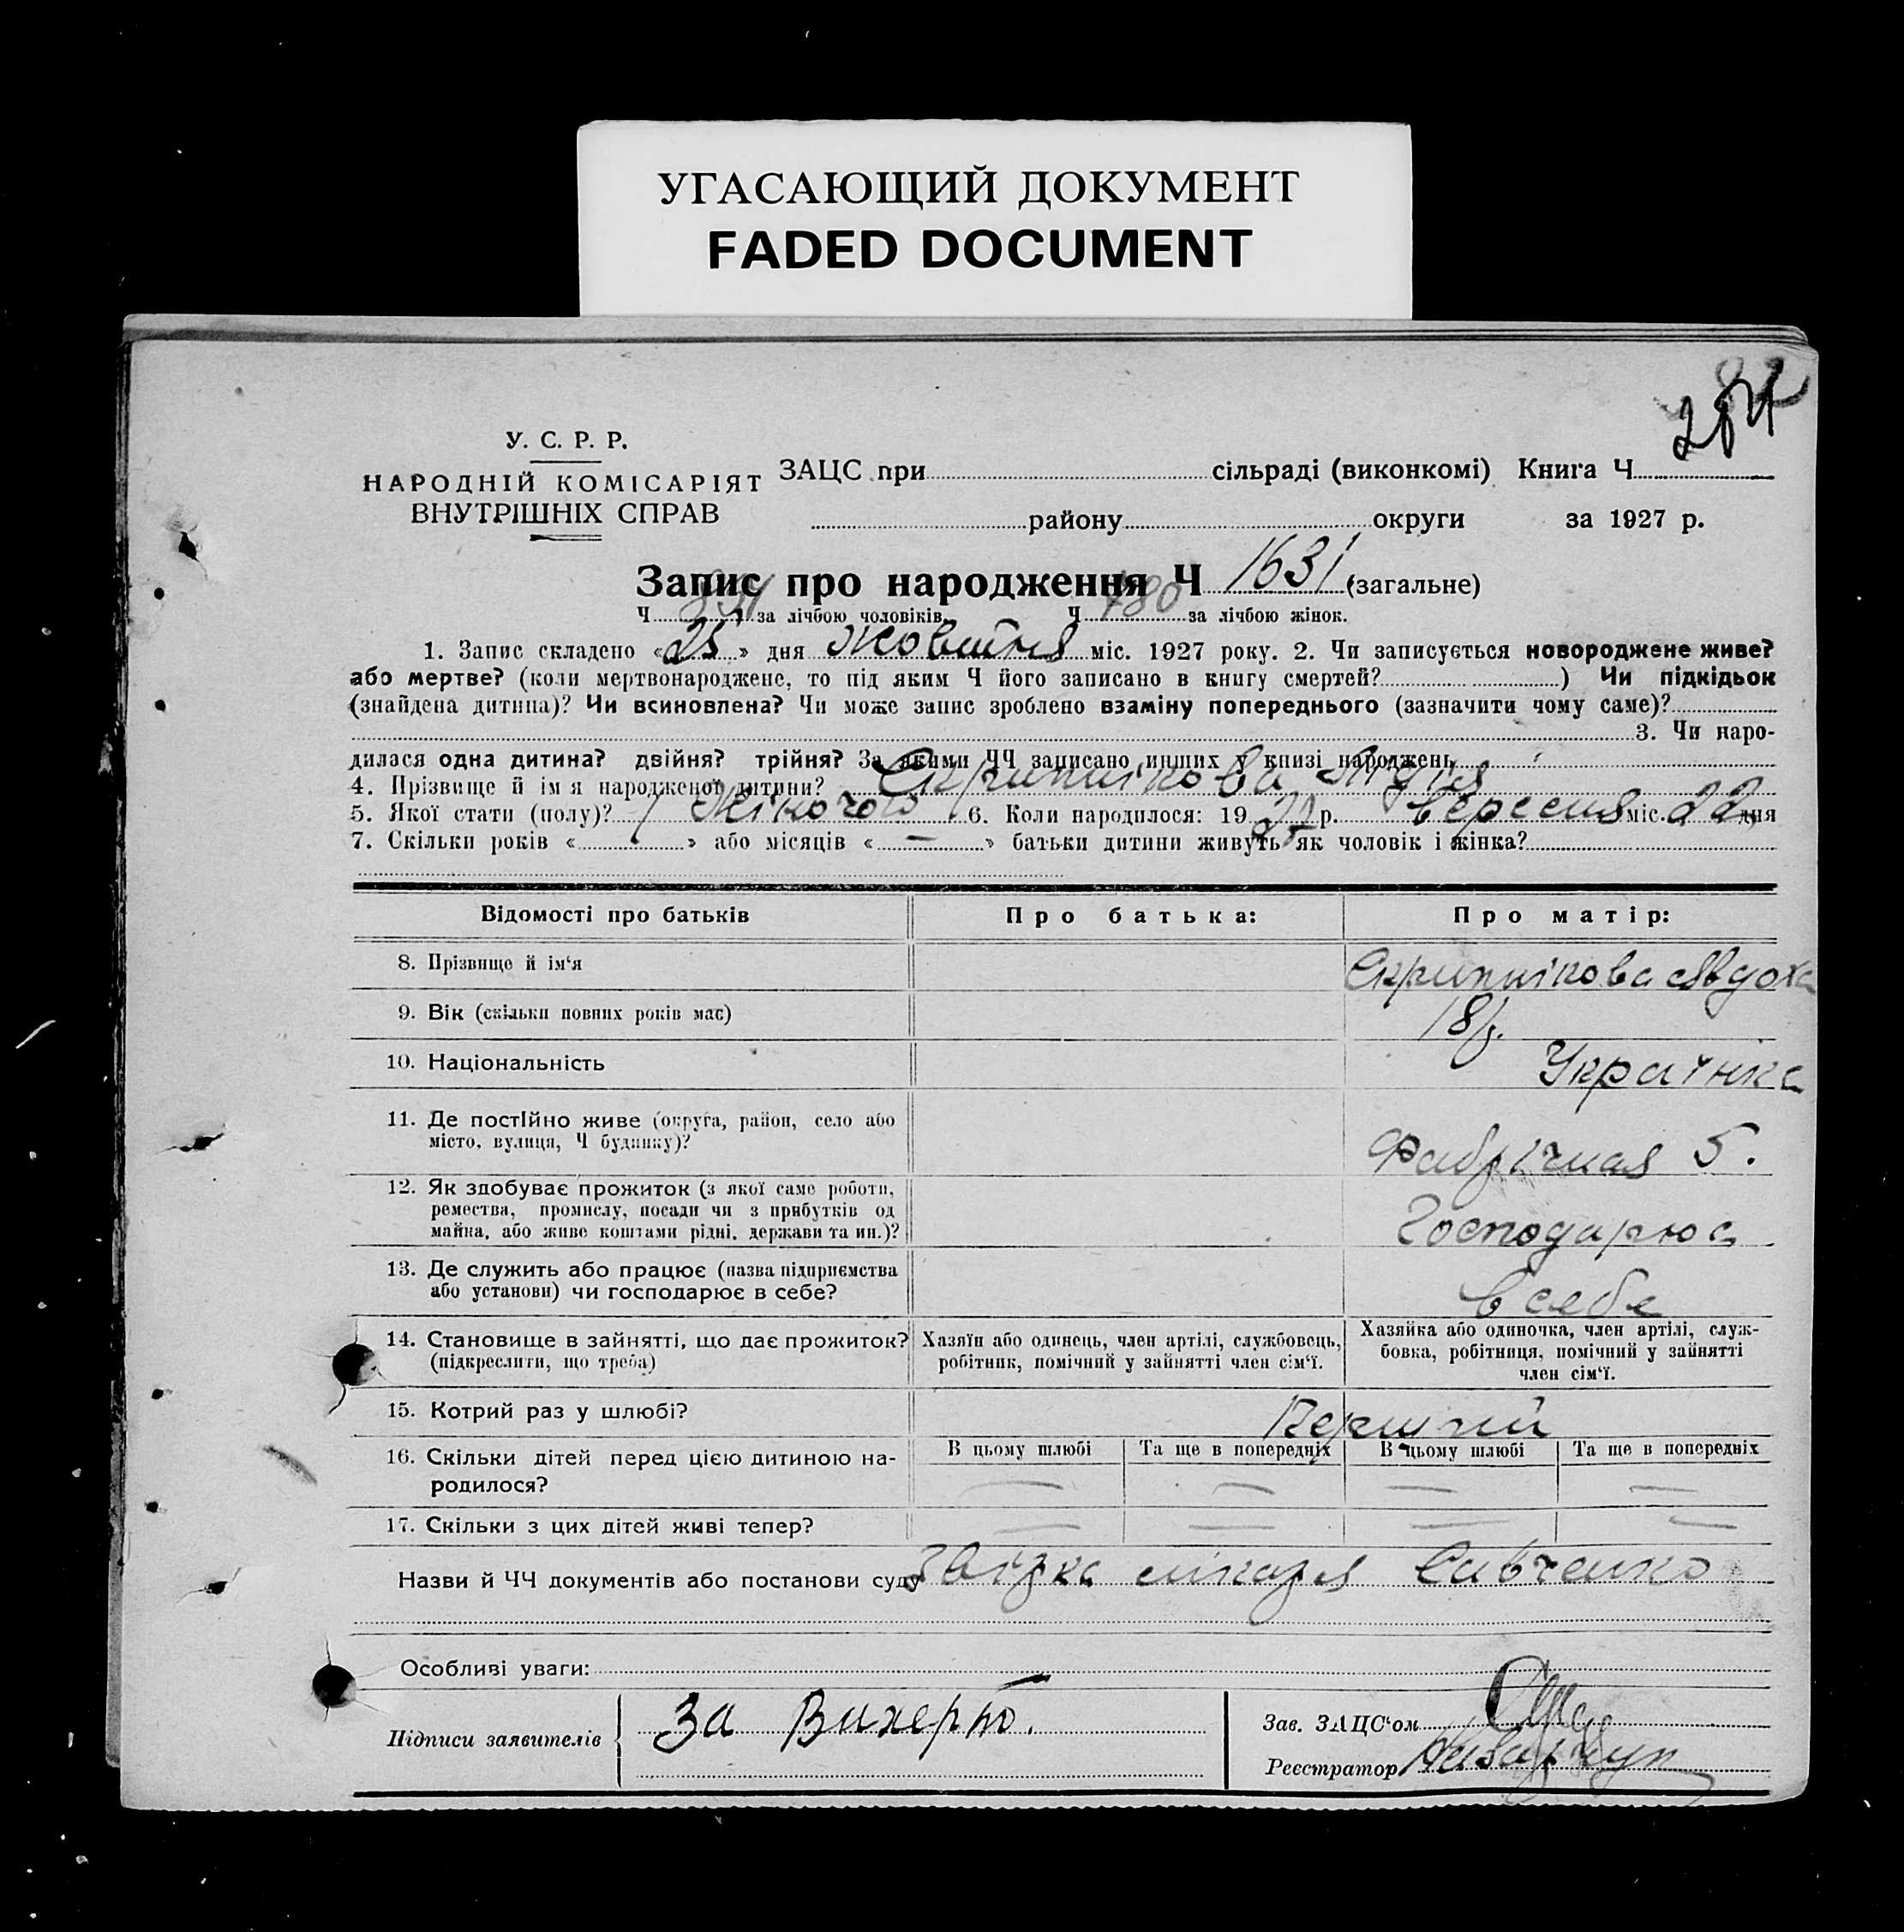 УГАСАЮЩИЙ ДОКУМЕНТ
FADED DOCUMENT
У. С. Р. Р.
НАРОДНІЙ КОМІСАРІЯТ
ВНУТРІШНІХ СПРАВ
ЗАЦС при сільраді (виконкомі) Книга Ч
району округи за 1927 р.
Запис про народження Ч 1631 (загальне)
Ч за лічбою чоловіків. Ч 780 за лічбою жінок.
1. Запис складено «25» дня жовтня міс. 1927 року. 2. Чи записується новороджене живе?
або мертве? (коли мертвонароджене, то під яким Ч його записано в книгу смертей? ) Чи підкідьок
(знайдена дитина)? Чи всиновлена? Чи може запис зроблено взаміну попереднього (зазначити чому саме)?
3. Чи наро-
дилася одна дитина? двійня? трійня? За якими ЧЧ записано инших у книзі народжень
4. Прізвище й ім я народженої дитини? Скрипнікова Лідія
5. Якої стати (полу)? Жіночого 6. Коли народилося: 1927 р. вересня міс. 22 дня
7. Скільки років « » або місяців « — » батьки дитини живуть як чоловік і жінка?
Відомості про батьків Про батька: Про матір:
8. Прізвище й ім'я Скрипнікова Явдоха
9. Вік (скільки повних років має) 18 р.
10. Національність Українка
11. Де постійно живе (округа, район, село або
місто, вулиця, Ч будинку)? Фабрічная 5.
12. Як здобуває прожиток (з якої саме роботи,
ремества, промислу, посади чи з прибутків од
майна, або живе коштами рідні, держави та ин.)? Господарює
13. Де служить або працює (назва підприємства
або установи) чи господарює в себе? в себе
14. Становище в зайнятті, що дає прожиток?
(підкреслити, що треба)
Хазяїн або одинець, член артілі, службовець,
робітник, помічний у зайнятті член сім'ї.
Хазяйка або одиночка, член артілі, служ-
бовка, робітниця, помічний у зайнятті
член сім'ї.
15. Котрий раз у шлюбі? Перший
16. Скільки дітей перед цією дитиною на-
родилося?
В цьому шлюбі Та ще в попередніх В цьому шлюбі Та ще в попередніх
— — — —
17. Скільки з цих дітей живі тепер? — — — —
Назви й ЧЧ документів або постанови суду Звізка лікаря Савченко
Особливі уваги:
Підписи заявителів За Вихерто.
Зав. ЗАЦС'ом
Реєстратор